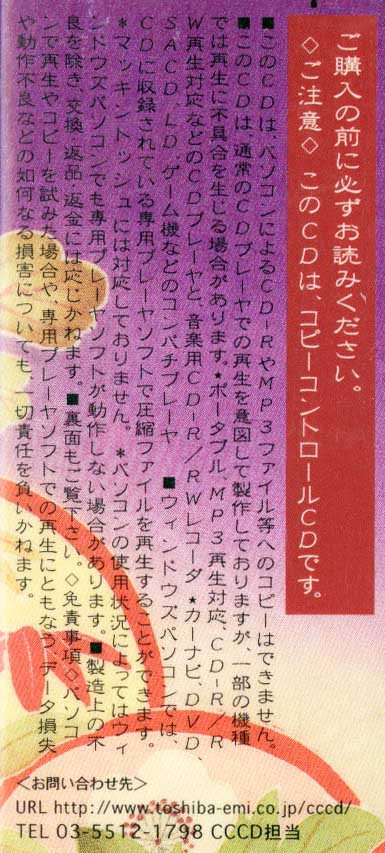 ご購入の前に必ずお読みください。
◇ご注意◇ このCDは、コピーコントロールCDです。
■このCDは、パソコンによるCD-RやMP3ファイル等へのコピーはできません。
■このCDは、通常のCDプレーヤでの再生を意図して製作しておりますが、一部の機種
では再生に不具合を生じる場合があります。★ポータブル、MP3再生対応、CD-R/R
W再生対応などのCDプレーヤと、音楽用CD-R/RWレコーダ ★カーナビ、DVD、
SACD、LD、ゲーム機などのコンパチプレーヤ ■ウィンドウズパソコンでは、
CDに収録されている専用プレーヤソフトで圧縮ファイルを再生することができます。
＊マッキントッシュには対応しておりません。 ＊パソコンの使用状況によってはウィ
ンドウズパソコンでも専用プレーヤソフトが動作しない場合があります。■製造上の不
良を除き、交換、返品・返金には応じかねます。■裏面もご覧下さい。◇免責事項◇パソコ
ンで再生やコピーを試みた場合や、専用プレーヤソフトでの再生にともなう、データ損失
や動作不良などの如何なる損害についても、一切責任を負いかねます。
<お問い合わせ先>
URL http://www.toshiba-emi.co.jp/cccd/
TEL 03-5512-1798 CCCD担当